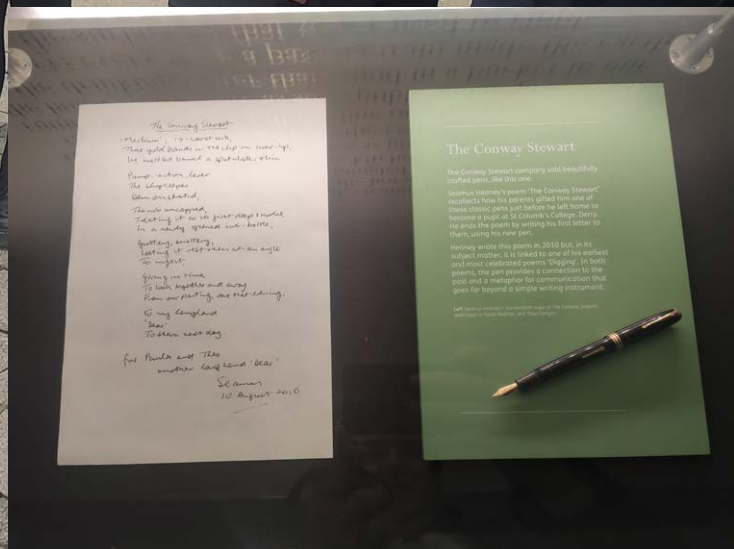 The Conway Stewart
'Medium', 14-carat nib,
Three gold bands in the clip-on screw-top,
In the mottled barrel a spatulate, thin
Pump-action lever
The shopkeeper
Demonstrated,
The nib uncapped,
Treating it to its first deep snorkel
In a newly opened ink-bottle,
Guttery, snottery,
Letting it rest then at an angle
To ingest,
Giving us time
To look together and away
From our parting, due that evening,
To my longhand
'Dear'
To them next day.
for Paula and Theo
another longhand 'Dear'
Seamus
10 August 2010
The Conway Stewart
The Conway Stewart company sold beautifully
crafted pens, like this one.
Seamus Heaney's poem 'The Conway Stewart'
recollects how his parents gifted him one of
these classic pens just before he left home to
become a pupil at St Columb's College, Derry.
He ends the poem by writing his first letter to
them, using his new pen.
Heaney wrote this poem in 2010 but, in its
subject matter, it is linked to one of his earliest
and most celebrated poems 'Digging'. In both
poems, the pen provides a connection to the
past and a metaphor for communication that
goes far beyond a simple writing instrument.
Left Seamus Heaney's handwritten copy of The Conway Stewart,
dedicated to Paula and Theo